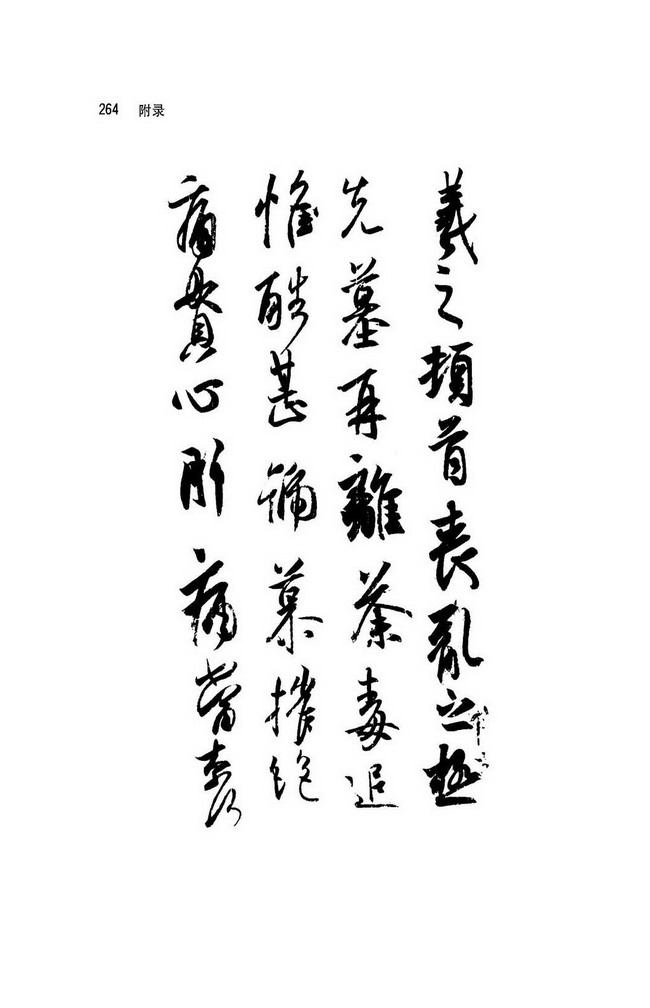 264 附录
羲之頓首喪亂之極
先墓再離荼毒追
惟酷甚號慕摧絕
痛貫心肝痛當奈何